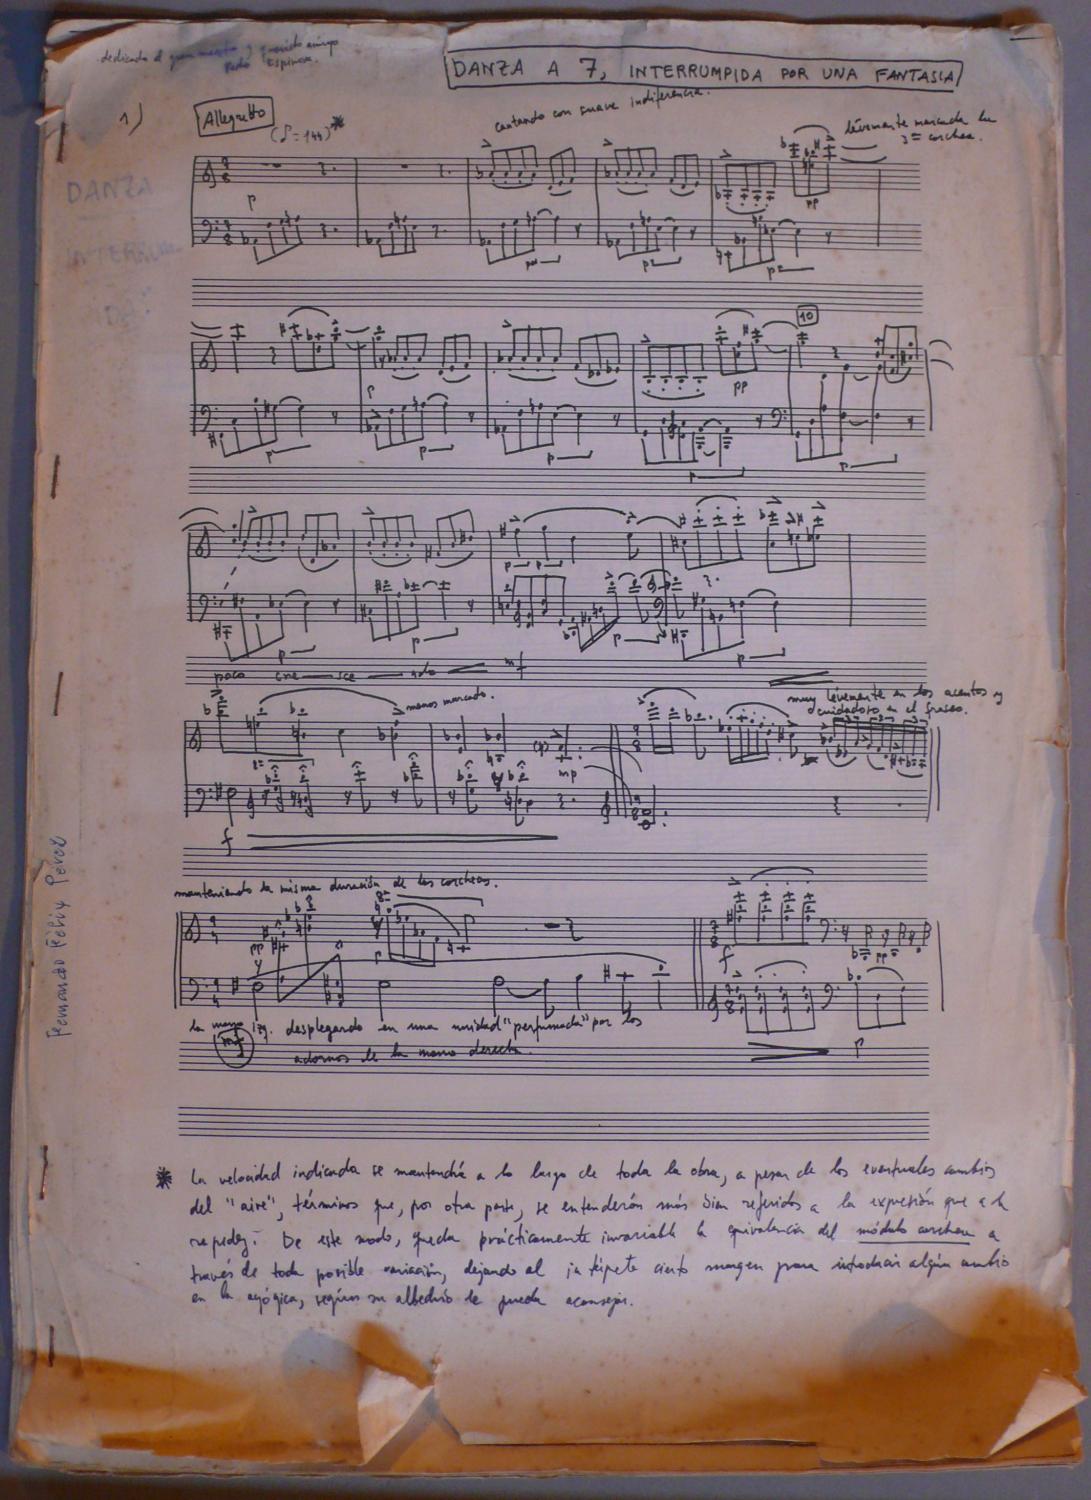 dedicada al gran maestro y querido amigo
Pedro Espinosa.
DANZA A 7, INTERRUMPIDA POR UNA FANTASIA
1)
Allegretto
(♪=144)*
cantando con suave indiferencia.
levemente marcada la
3ª corchea.
DANZA
INTERRUM
PIDA
p
pp
p
pp
10
poco cre sce ndo mf
menos marcado.
muy levemente en los acentos y
cuidadoso en el fraseo.
mp
f
manteniendo la misma duración de las corcheas.
pp
p
f
pp
la mano izq. desplegando en una unidad "perfumada" por los
mf
adornos de la mano derecha.
p
Fernando Félix Pérez
* La velocidad indicada se mantendrá a lo largo de toda la obra, a pesar de los eventuales cambios
del "aire", términos que, por otra parte, se entenderán más bien referidos a la expresión que a la
rapidez. De este modo, queda prácticamente invariable la equivalencia del módulo corchea a
través de toda posible variación, dejando al intérprete cierto margen para introducir algún cambio
en la agógica, según su albedrío le pueda aconsejar.